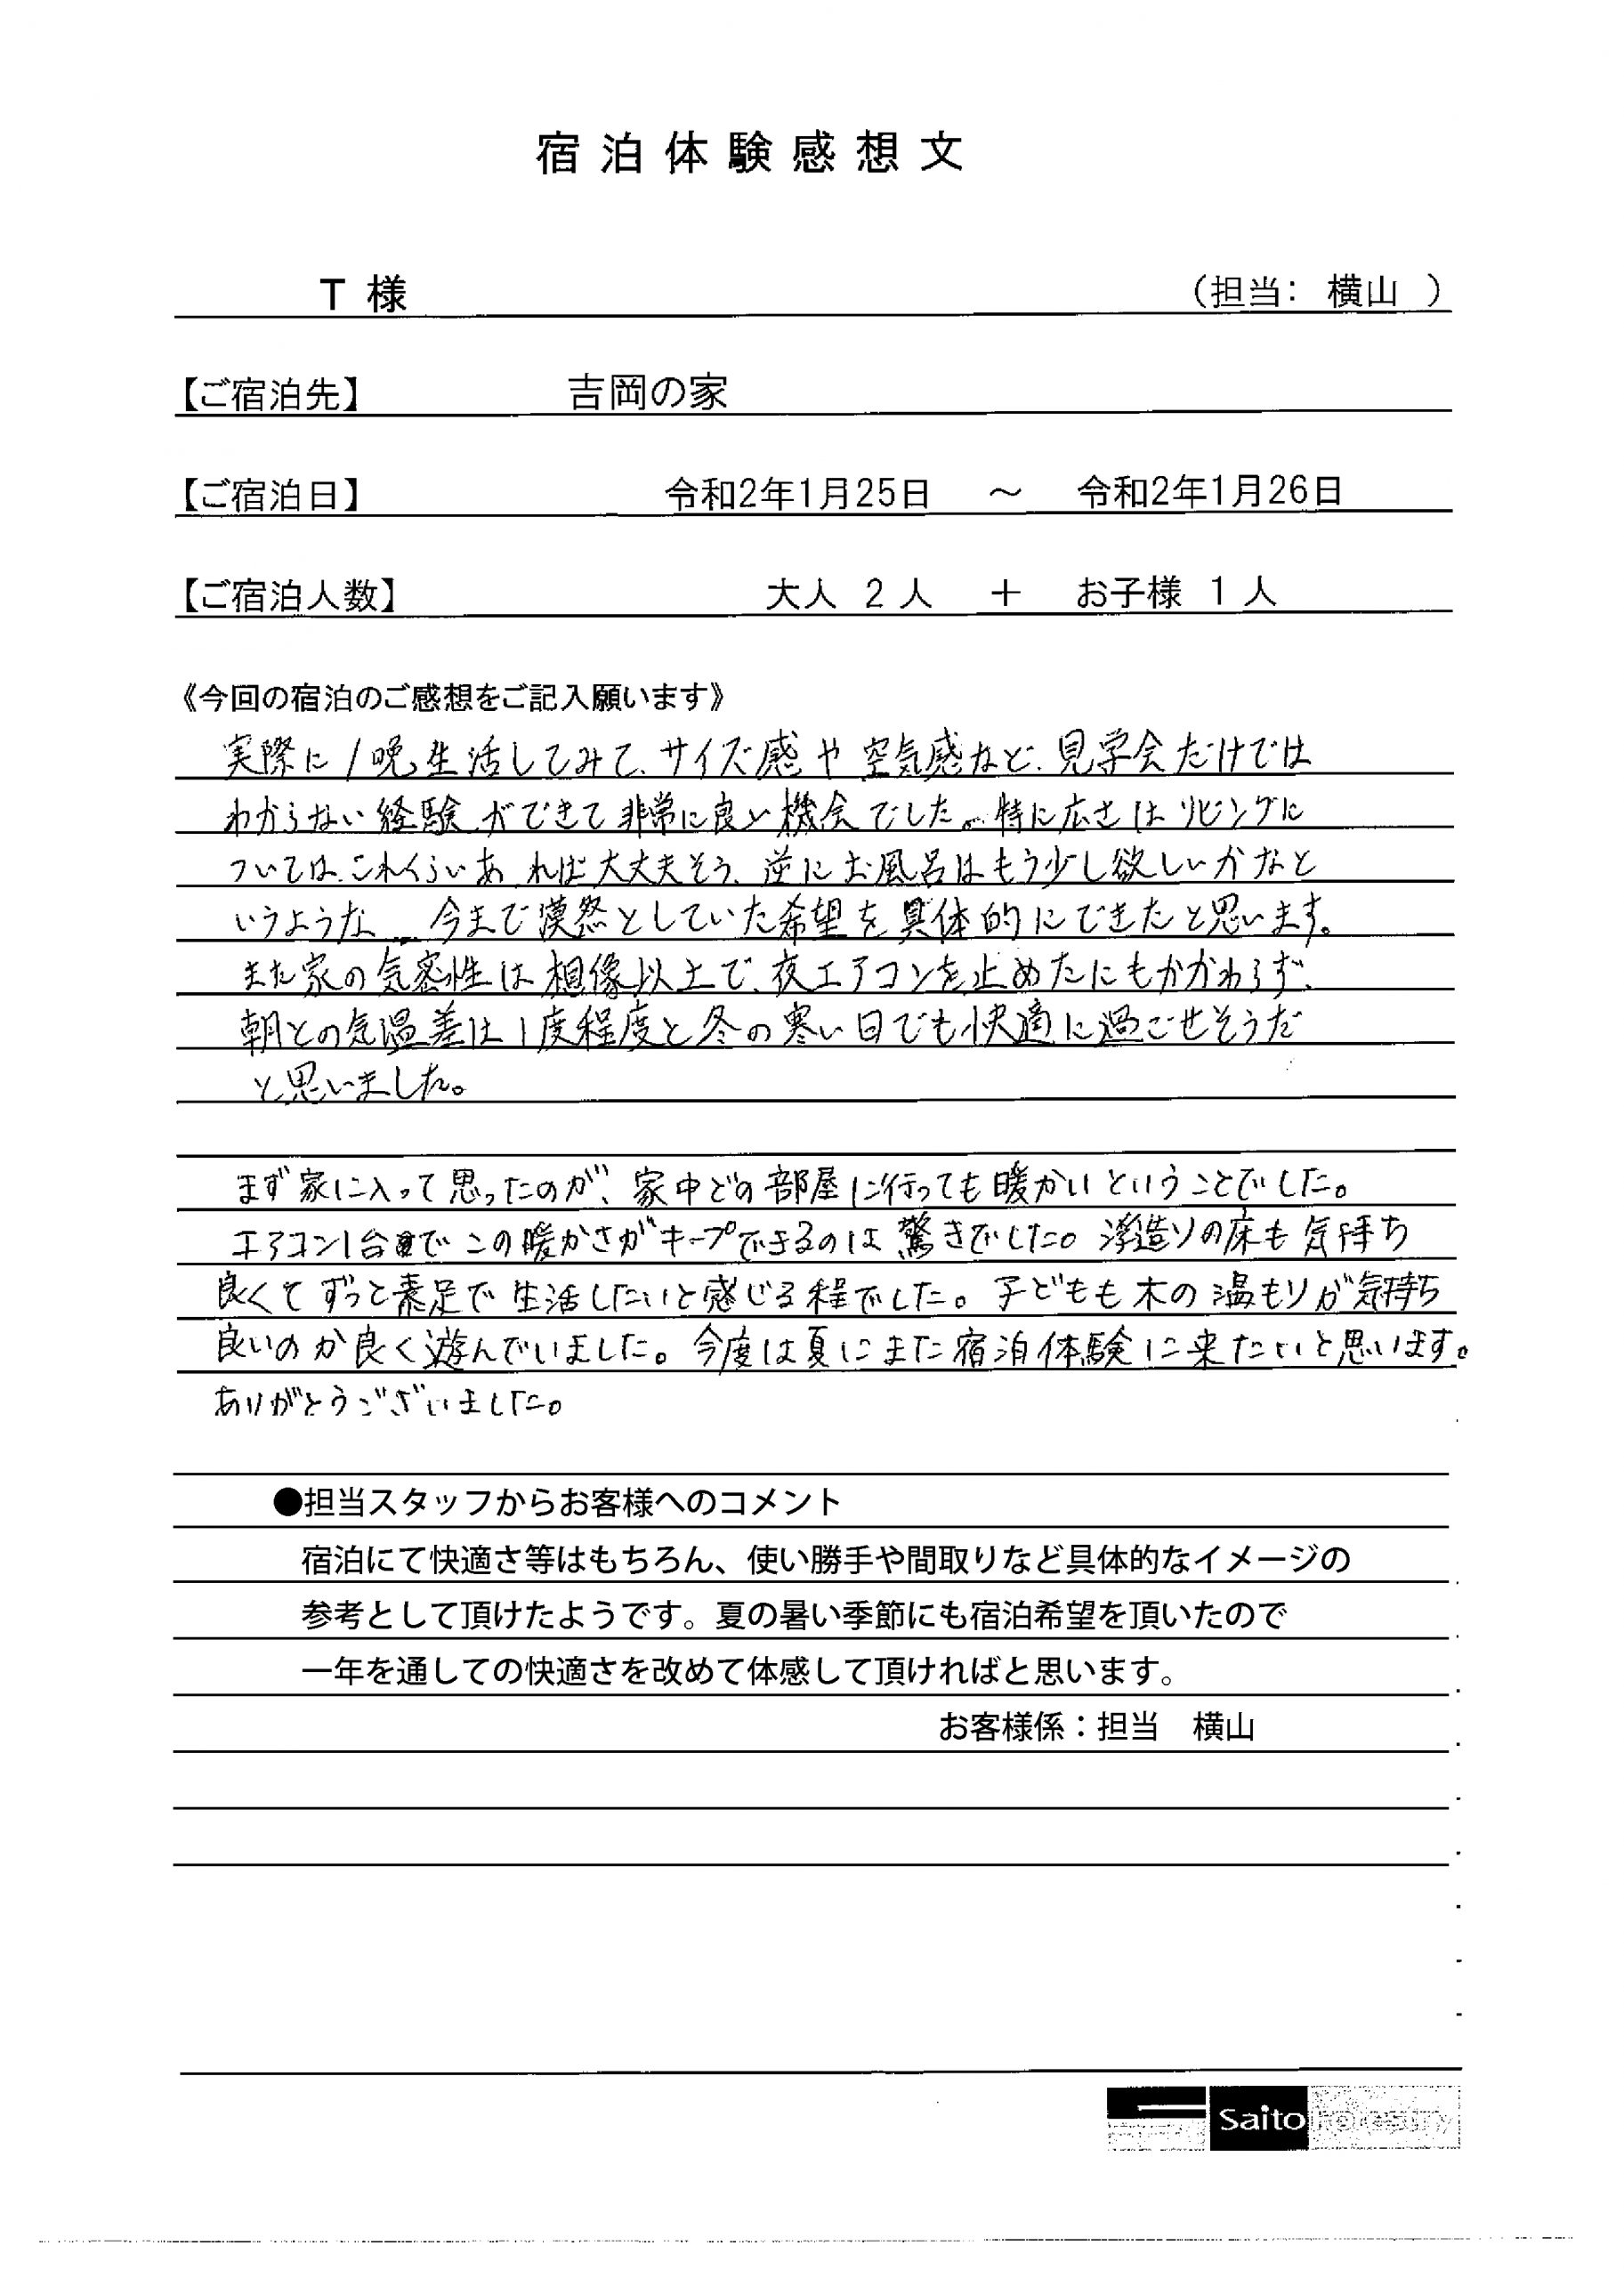 宿泊体験感想文
T 様 （担当： 横山 ）
【ご宿泊先】 吉岡の家
【ご宿泊日】 令和2年1月25日 ～ 令和2年1月26日
【ご宿泊人数】 大人 2 人 ＋ お子様 1 人
《今回の宿泊のご感想をご記入願います》
実際に1晩生活してみて、サイズ感や空気感など、見学会だけでは
わからない経験ができて非常に良い機会でした。特に広さはリビングに
ついては、これくらいあれば大丈夫そう、逆にお風呂はもう少し欲しいかなと
いうような…今まで漠然としていた希望を具体的にできたと思います。
また家の気密性は想像以上で、夜エアコンを止めたにもかかわらず、
朝との気温差は1度程度と冬の寒い日でも快適に過ごせそうだ
と思いました。
まず家に入って思ったのが、家中どの部屋に行っても暖かいということでした。
エアコン1台でこの暖かさがキープできるのは驚きでした。浮造りの床も気持ち
良くてずっと素足で生活したいと感じる程でした。子どもも木の温もりが気持ち
良いのか良く遊んでいました。今度は夏にまた宿泊体験に来たいと思います。
ありがとうございました。
●担当スタッフからお客様へのコメント
宿泊にて快適さ等はもちろん、使い勝手や間取りなど具体的なイメージの
参考として頂けたようです。夏の暑い季節にも宿泊希望を頂いたので
一年を通しての快適さを改めて体感して頂ければと思います。
お客様係：担当　横山
Saito Forestry